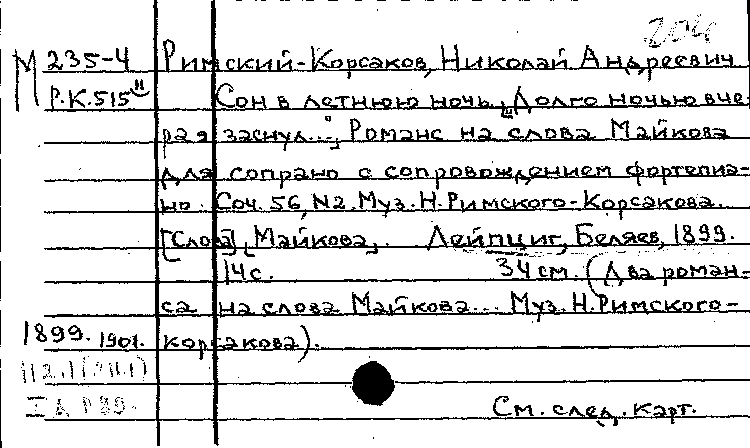 204
М 235-4 Римский-Корсаков, Николай Андреевич
Р.К.515 II Сон в летнюю ночь. „Долго ночью вче
ра я заснул...", Романс на слова Майкова
для сопрано с сопровождением фортепиа-
но. Соч. 56, N2. Муз. Н. Римского-Корсакова.
[Слова] Майкова. Лейпциг, Беляев, 1899.
14 с. 34 см. (Два роман-
са на слова Майкова... Муз. Н. Римского-
1899. 1901. Корсакова).
См. след. карт.